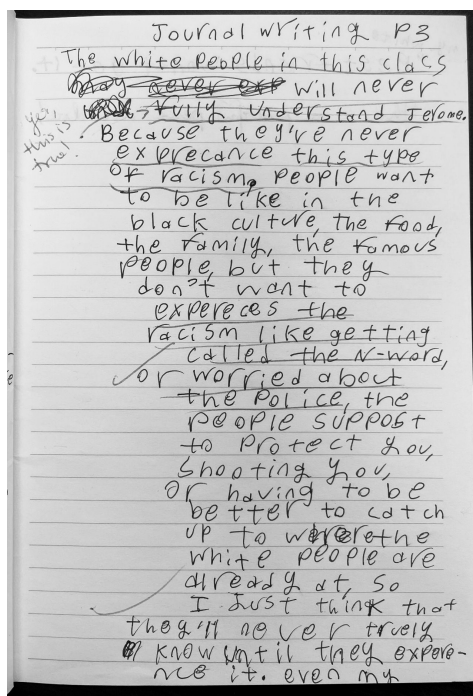 Journal writing P3
The white people in this class
will never
fully understand Jerome.
yes,
this is
true!
Because they've never
exprecance this type
of racism. People want
to be like in the
black culture, the food,
the family, the famous
people, but they
don't want to
expereces the
racism like getting
called the N-word,
or worried about
the police, the
people suppost
to protect you,
shooting you,
or having to be
better to catch
up to were the
white people are
already at, so
I Just think that
they'll never truely
know until they expere-
nce it. even my